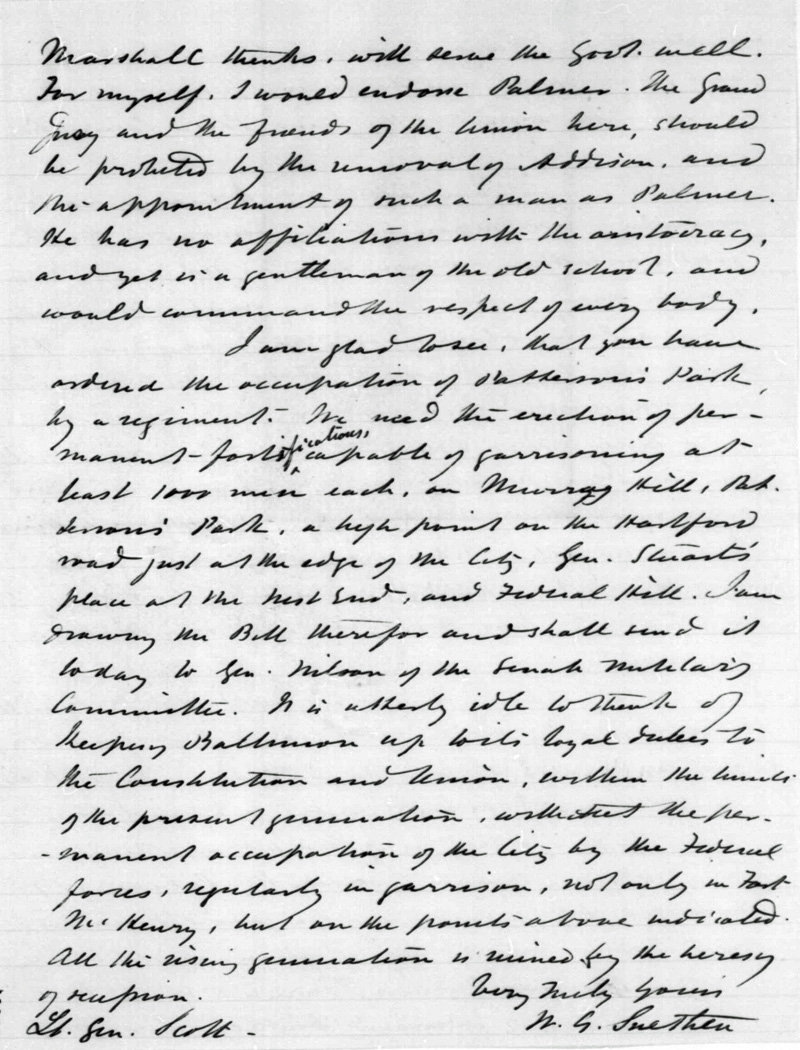 Marshall thinks, will serve the Govt. well.
For myself, I would endorse Palmer. The Grand
Jury and the friends of the Union here, should
be protected by the removal of Addison, and
the appointment of such a man as Palmer.
He has no affiliations with the aristocracy,
and yet is a gentleman of the old school, and
would command the respect of every body.
I am glad to see, that you have
ordered the occupation of Patterson's Park,
by a regiment. We need the erection of per-
manent fortifications, capable of garrisoning at
least 1000 men each, on Murray Hill, Pat-
terson's Park, a high point on the Hartford
road just at the edge of the City, Gen. Stuart's
place at the West End, and Federal Hill. I am
drawing the Bill therefor and shall send it
today to Gen. Wilson of the Senate Military
Committee. It is utterly idle to think of
keeping Baltimore up to its loyal duties to
the Constitution and Union, within the limits
of the present generation, without the per-
-manent occupation of the City by the Federal
forces, regularly in garrison, not only in Fort
McHenry, but on the points above indicated.
All the rising generation is ruined by the heresy
of secession.
Very truly yours
Lt. Gen. Scott -
W. G. Snethen